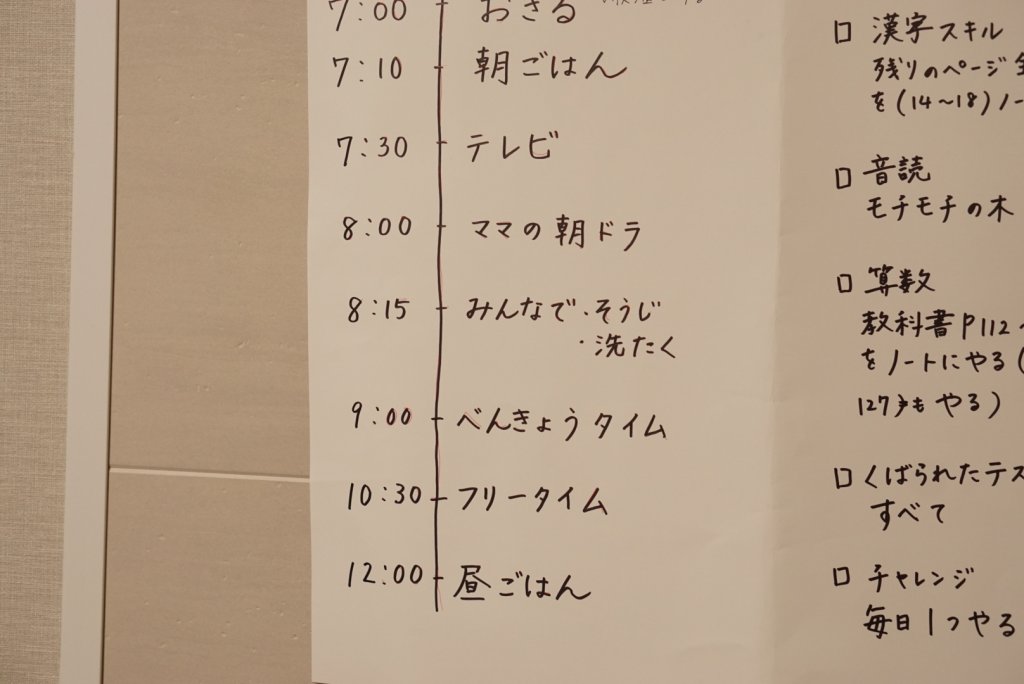 7:00 おさる
7:10 朝ごはん
7:30 テレビ
8:00 ママの朝ドラ
8:15 みんなで・そうじ
・洗たく
9:00 べんきょうタイム
10:30 フリータイム
12:00 昼ごはん
□ 漢字スキル
残りのページ全
を(14〜18)ノー
□ 音読
モチモチの木
□ 算数
教科書P112〜
をノートにやる(
127もやる)
□ くばられたテス
すべて
□ チャレンジ
毎日1つやる